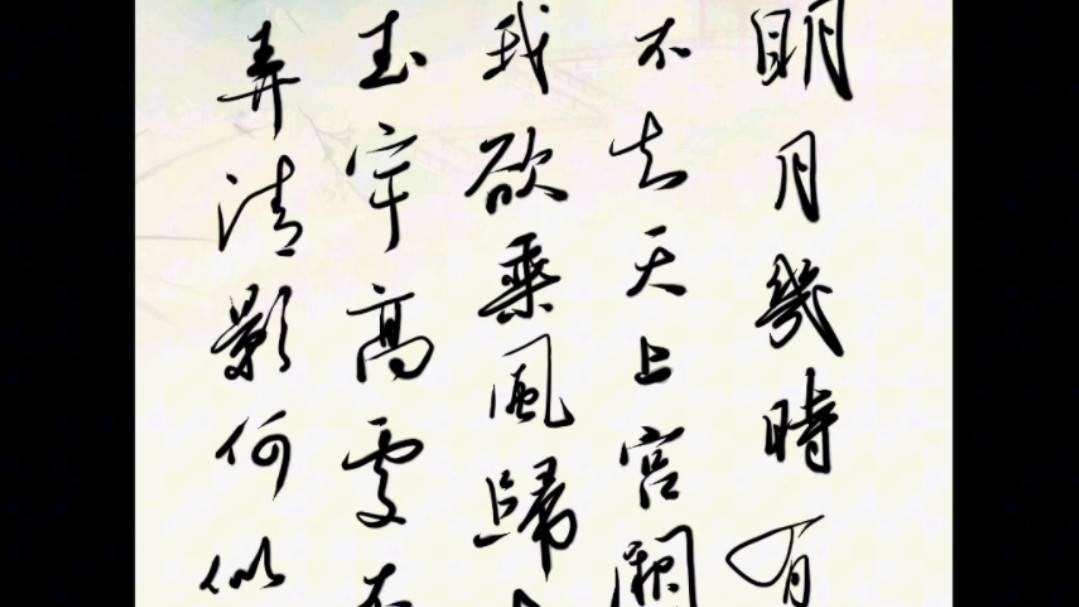 明月幾時有
不知天上宮闕
我欲乘風歸
玉宇高處不
弄清影何似